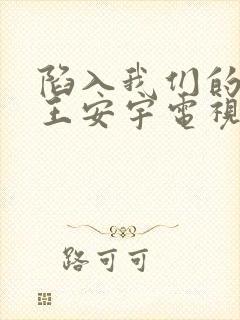 陷入我们的
王安宇電視
路可可